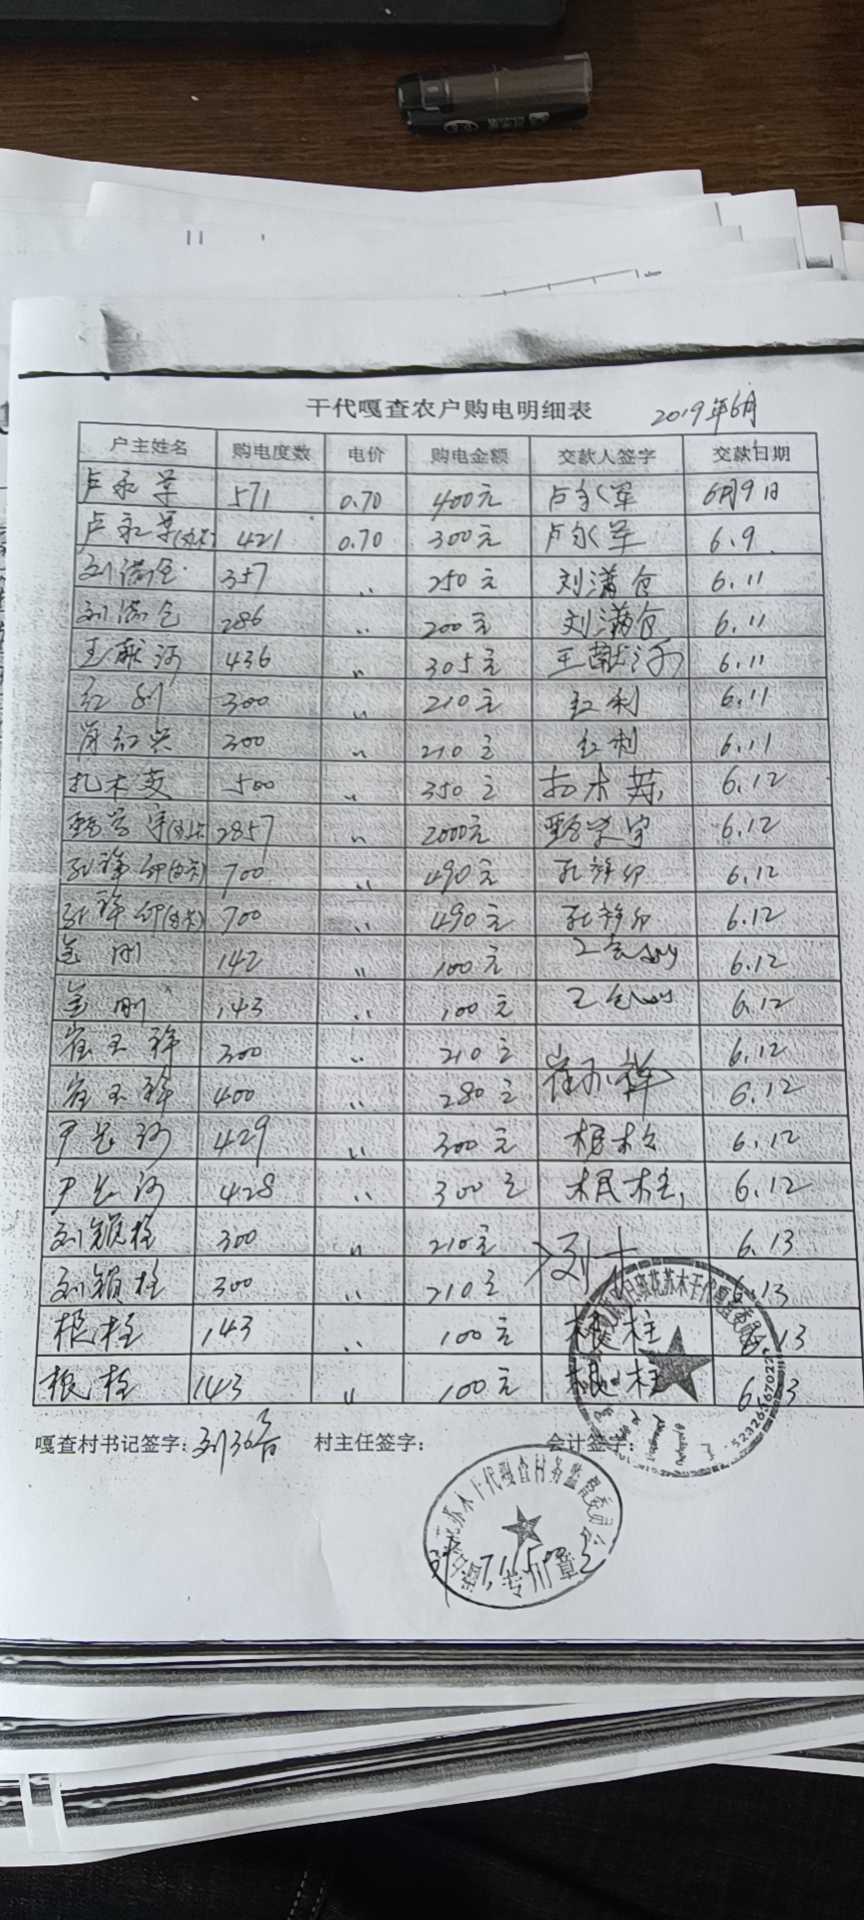 干代嘎查农户购电明细表 2019年6月
户主姓名 购电度数 电价 购电金额 交款人签字 交款日期
卢永军 571 0.70 400元 卢永军 6月9日
卢永军 421 0.70 300元 卢永军 6.9
刘满仓 357 〃 250元 刘满仓 6.11
刘满仓 286 〃 200元 刘满仓 6.11
王献河 436 〃 305元 王献河 6.11
红利 300 〃 210元 红利 6.11
300 〃 210元 红利 6.11
扎木 500 〃 350元 扎木 6.12
2857 〃 2000元 6.12
700 〃 490元 6.12
700 〃 490元 6.12
金刚 142 〃 100元 6.12
金刚 143 〃 100元 6.12
崔玉祥 300 〃 210元 崔玉祥 6.12
崔玉祥 400 〃 280元 6.12
429 〃 300元 根柱 6.12
428 〃 300元 根柱 6.12
刘锁柱 300 〃 210元 刘 6.13
刘锁柱 300 〃 210元 6.13
根柱 143 〃 100元 根柱 6.13
根柱 143 〃 100元 根柱 6.13
嘎查村书记签字: 村主任签字: 会计签字:
花苏木干代嘎查
苏木干代嘎查村务监督委员会